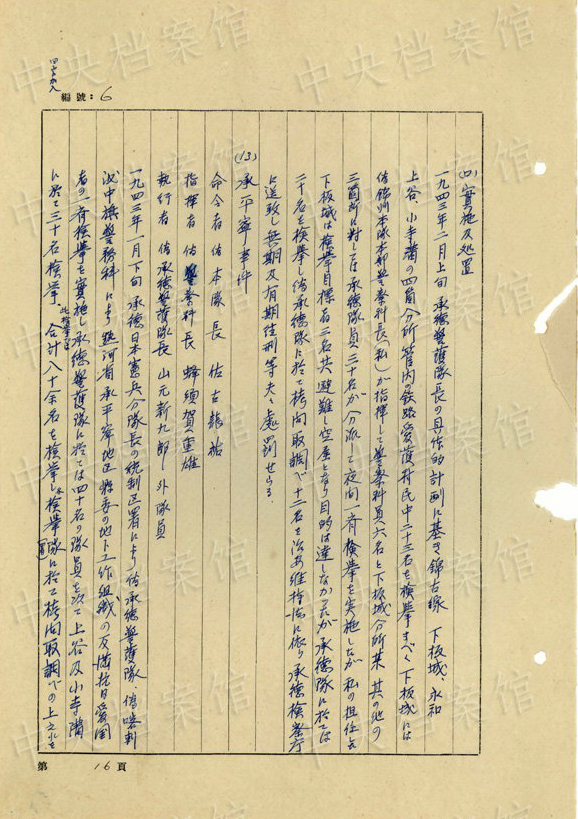 編號：6
(四)實施及処置
一九四三年二月上旬 承徳警護隊長の具体的計劃に基き錦古線 下板城、永和
上谷、小寺溝の四箇分所管内の鉄路愛護村民中二十三名を検挙すべく下板城には
偽錦州本隊本部警務科長(私)が指揮して警務科員六名と下板城分所某 其の他の
三箇所に対しては承徳隊員三十名が分派して夜间一斉検挙を実施したが私の担任
下板城は検挙目標者三名共避難し空屋となり目的は達しなかったが承徳隊に於ては
二十名を検挙し偽承徳隊に於て拷問取調べ十二名を治安維持法に依り承徳検察庁
に送致し無期及有期徒刑等夫々處罰せらる.
(13)承平寧事件
命令者 偽本隊長 佐古龍祐
指揮者 偽警務科長 蜂須賀重雄
執行者 偽承徳警護隊長 山元新九郎 外隊員
一九四三年一月下旬 承徳日本憲兵分隊長の統制区署により偽承徳警護隊 偽喀喇
沁中旗警務科により熱河省承平寧地区 縣委の地下工作組織の反満抗日愛国
者の一斉検挙を実施し承徳警護隊に於ては四十名の隊員を以て上谷及小寺溝
に於て三十名検挙、合計八十余名を検挙し 検挙隊に於て拷問取調べの上
第 16 頁
中央档案馆